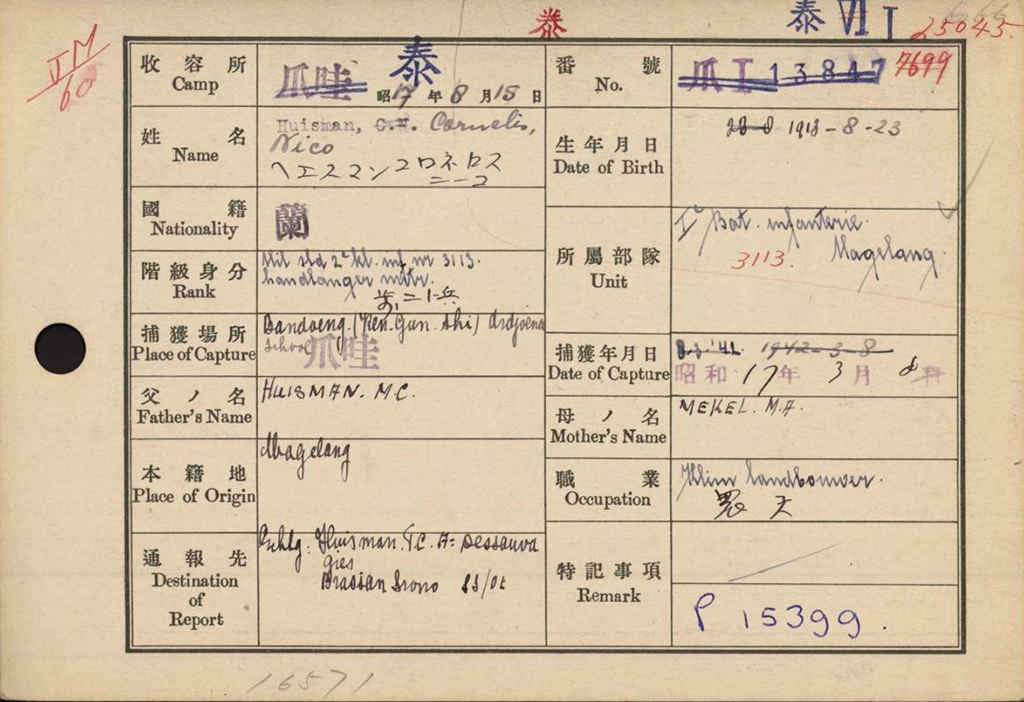 泰
泰 VI I
25045.
7699
IM
60
收容所
Camp
爪哇
泰
昭17年8月15日
番號
No.
爪I 13847
姓名
Name
Huisman, C.N. Cornelis,
Nico
ヘエスマンコロネロス
ニーコ
生年月日
Date of Birth
1913-8-23
國籍
Nationality
蘭
所屬部隊
Unit
Iᵉ Bat. infanterie.
Magelang.
3113.
階級身分
Rank
Mil sld 2ᵉ kl. inf nr 3113.
handlanger mitr.
捕獲場所
Place of Capture
Bandoeng. (Ken. Gun. Shi) Ardjoena
School
爪哇
捕獲年月日
Date of Capture
8.3.'42. 1942-3-8
昭和17年3月8日
父ノ名
Father's Name
HUISMAN. M.C.
母ノ名
Mother's Name
MEKEL. M.A.
本籍地
Place of Origin
Magelang
職業
Occupation
Klein landbouwer.
農夫
通報先
Destination
of
Report
Huisman. F.C. A= Dessauva
gies
特記事項
Remark
P 15399.
16571